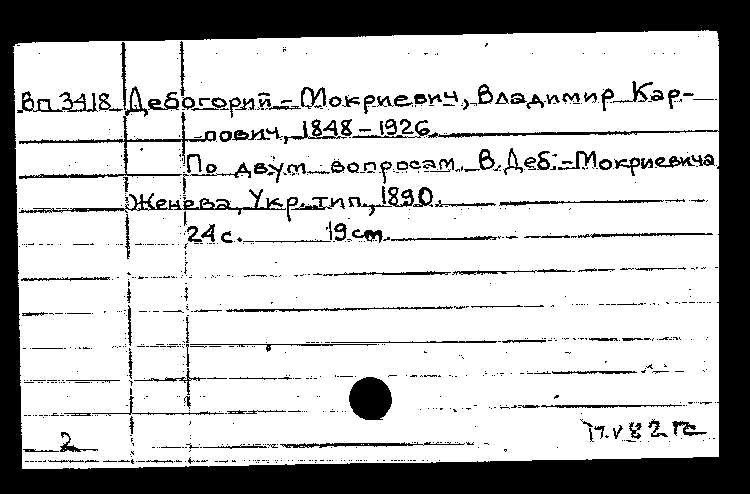 Вп 3418 Дебогорий-Мокриевич, Владимир Кар-
пович, 1848-1926.
По двум вопросам. В. Деб.-Мокриевича
Женева, Укр. тип., 1890.
24 с. 19 cm.
2